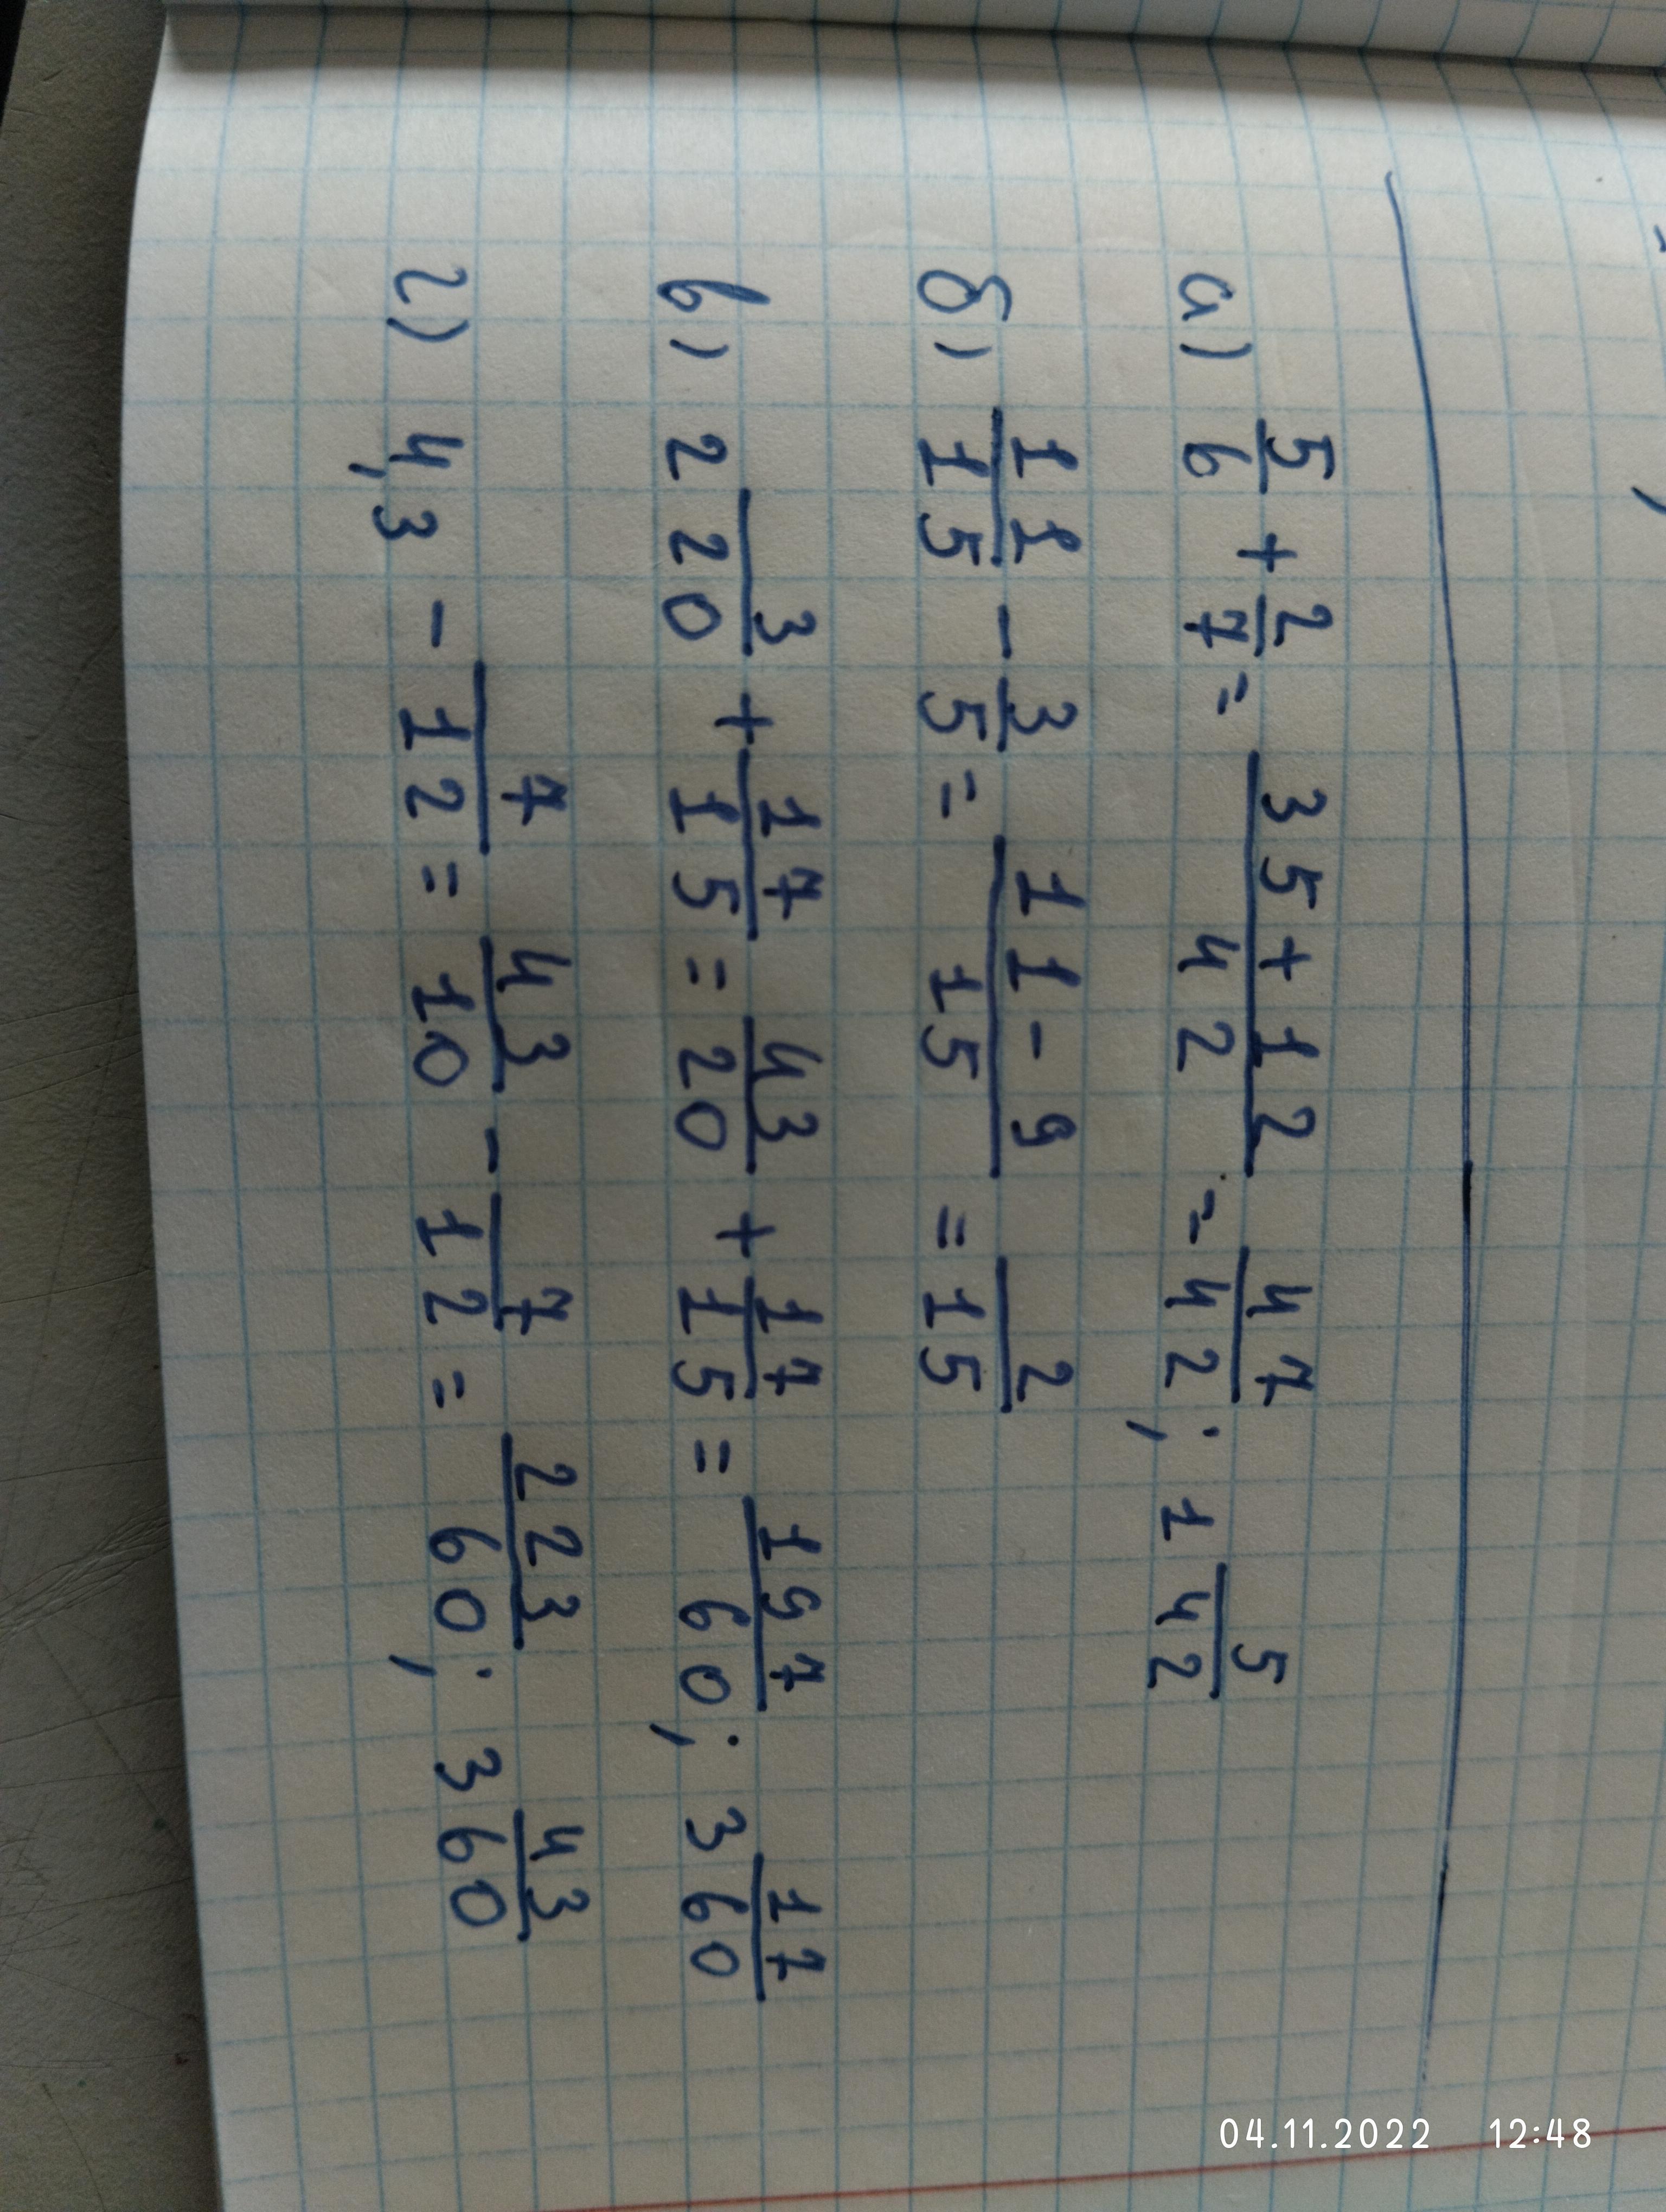 а) 5/6 + 2/7 = 35+12/42 = 47/42; 1 5/42
б) 11/15 - 3/5 = 11-9/15 = 2/15
в) 2 3/20 + 17/15 = 43/20 + 17/15 = 197/60; 3 17/60
г) 4,3 - 7/12 = 43/10 - 7/12 = 223/60; 3 43/60
04.11.2022 12:48